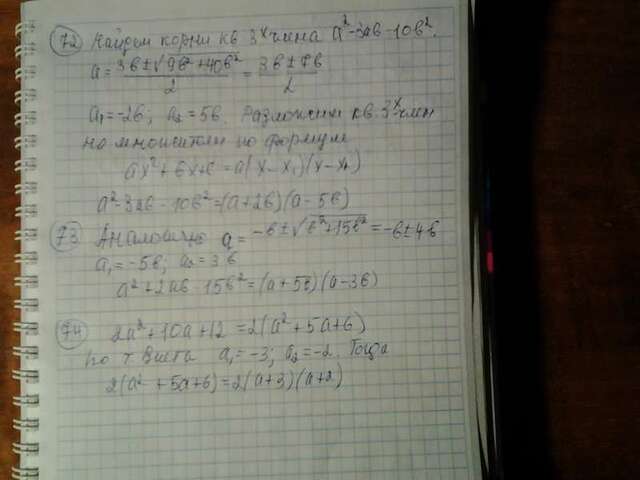 72 Найдем корни кв 3х члена a² - 3ab - 10b².
a = 3b ± √9b² + 40b² / 2 = 3b ± 7b / 2
a₁ = -2b; a₂ = 5b. Разложим кв. 3х-член
на множители по формуле
ax² + bx + c = a(x - x₁)(x - x₂)
a² - 3ab - 10b² = (a + 2b)(a - 5b)
73 Аналогично a = -b ± √b² + 15b² = -b ± 4b
a₁ = -5b; a₂ = 3b
a² + 2ab - 15b² = (a + 5b)(a - 3b)
74 2a² + 10a + 12 = 2(a² + 5a + 6)
по т. Виета a₁ = -3; a₂ = -2. Тогда
2(a² + 5a + 6) = 2(a + 3)(a + 2)